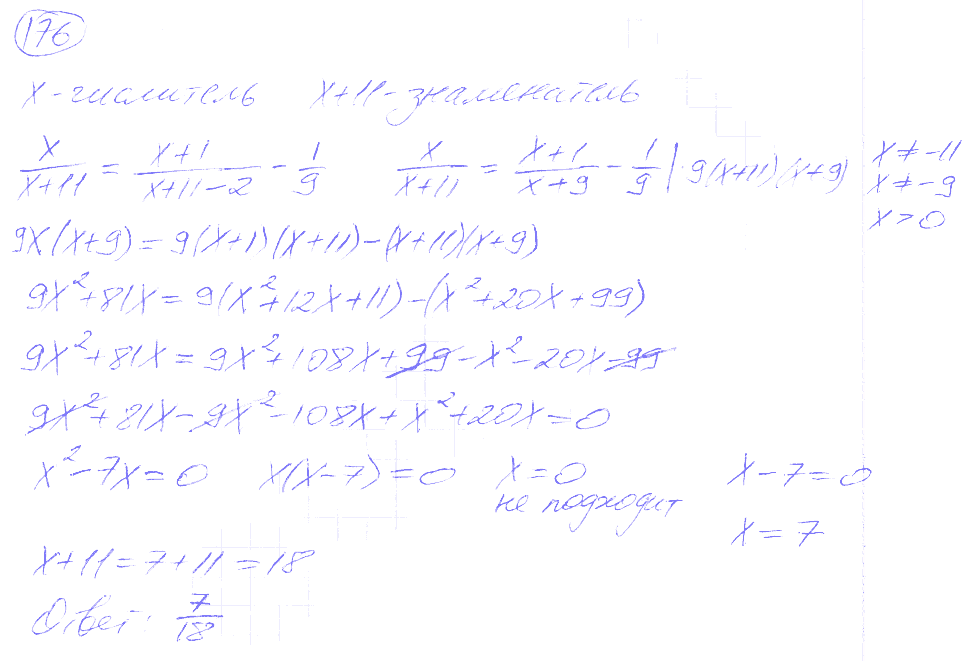 176
x - числитель x+11 - знаменатель
x/(x+11) = (x+1)/(x+11-2) - 1/9 x/(x+11) = (x+1)/(x+9) - 1/9 | · 9(x+11)(x+9) x ≠ -11
x ≠ -9
x > 0
9x(x+9) = 9(x+1)(x+11) - (x+11)(x+9)
9x² + 81x = 9(x² + 12x + 11) - (x² + 20x + 99)
9x² + 81x = 9x² + 108x + 99 - x² - 20x - 99
9x² + 81x - 9x² - 108x + x² + 20x = 0
x² - 7x = 0 x(x-7) = 0 x = 0 x - 7 = 0
не подходит
x = 7
x + 11 = 7 + 11 = 18
Ответ: 7/18